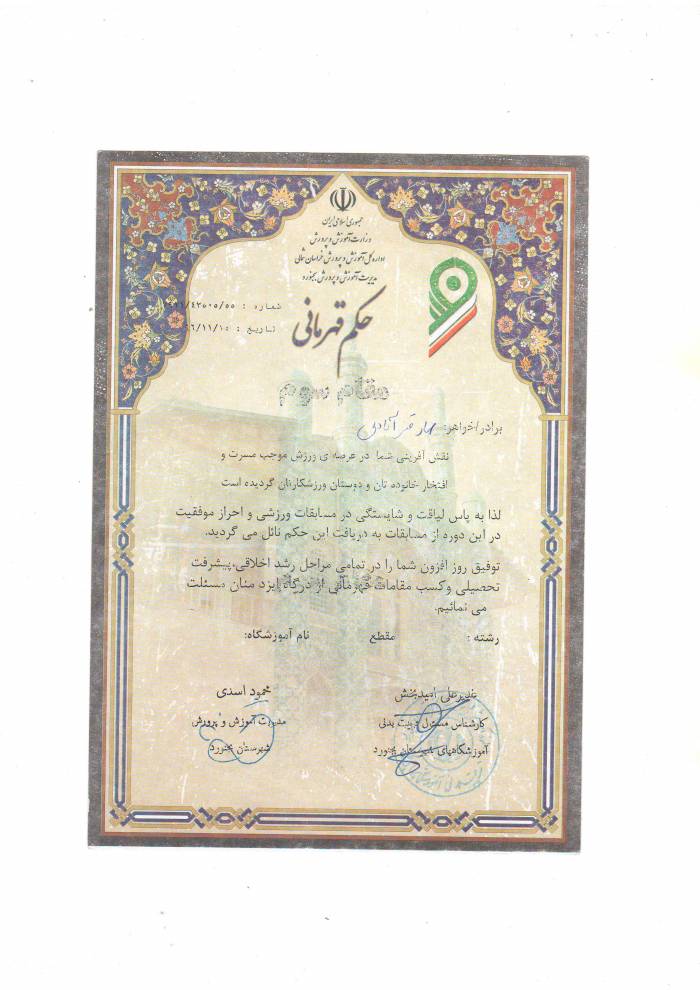 جمهوری اسلامی ایران
وزارت آموزش و پرورش
اداره کل آموزش و پرورش خراسان شمالی
مدیریت آموزش و پرورش بجنورد
شماره : /۴۲۵۰۵/۵۵
تاریخ : ۶/۱۱/۱۵
حکم قهرمانی
مقام سوم
برادر/خواهر:
نقش آفرینی شما در عرصه ی ورزش موجب مسرت و
افتخار خانوده تان و دوستان ورزشکارتان گردیده است
لذا به پاس لیاقت و شایستگی در مسابقات ورزشی و احراز موفقیت
در این دوره از مسابقات به دریافت این حکم نائل می گردید.
توفیق روز افزون شما را در تمامی مراحل رشد اخلاقی،پیشرفت
تحصیلی وکسب مقامات قهرمانی از درگاه ایزد منان مسئلت
می نمائیم.
رشته : مقطع نام آموزشگاه:
امیدبخش
کارشناس مسئول تربیت بدنی
آموزشگاههای شهرستان بجنورد
محمود اسدی
مدیریت آموزش و پرورش
شهرستان بجنورد